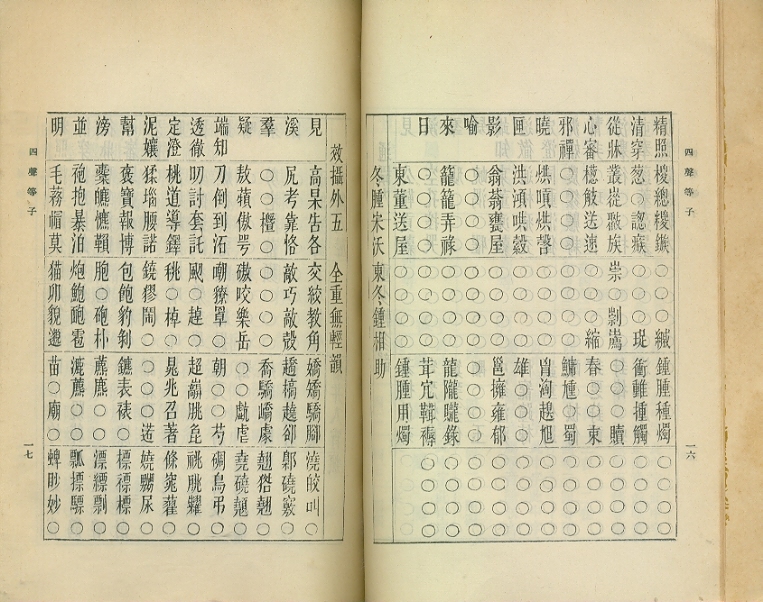 四聲等子
一六
精照 總糉鏃 ○○○ 鍾腫種燭 ○○○○
清穿 蔥○認瘯 ○○○珿 衝○揰觸 ○○○○
從牀 叢從族 崇○剬 ○○○贖 ○○○○
心審 送速 ○○○縮 舂○○束 ○○○○
邪禪 ○○○○ ○○○○ 鱅尰○蜀 ○○○○
曉 烘嗊烘 ○○○○ 胷洶旭 ○○○○
匣 洪澒哄縠 ○○○○ 雄○○○ ○○○○
影 翁蓊甕屋 ○○○○ 邕擁雍郁 ○○○○
喻 ○○○○ ○○○○ ○○○○ ○○○○
來 籠籠弄祿 ○○○○ 龍隴錄 ○○○○
日 ○○○○ ○○○○ 茸宂褥 ○○○○
東董送屋 鍾腫用燭
冬腫宋沃 東冬鍾相助
效攝外五 全重無輕韻
見 高杲告各 交絞教角 嬌矯驕腳 澆皎叫○
溪 尻考靠恪 敲巧敲殻 趫槁趬卻 鄡磽竅○
羣 ○○○ ○○○○ 喬驕嶠噱 翹翹○
疑 敖傲咢 磝咬樂岳 ○○虐 堯磽○
端知 刀倒到沰 嘲獠罩○ 朝○○芍 碉鳥弔○
透徹 叨討套託 ○趠○ 超朓㲋 祧朓糶○
定澄 桃道導鐸 祧○棹○ 晁兆召著 條窕藋○
泥孃 猱瑙腰諾 鐃鬧○ ○○○逽 嬈嬲尿○
幫 襃寶報博 包飽豹剝 鑣表裱○ 標褾標○
滂 皫 胞○砲朴 藨麃○○ 漂縹剽○
並 袍抱暴泊 炮鮑靤雹 瀌藨○○ 瓢摽驃○
明 毛蓩帽莫 猫卯貌邈 苗○廟○ 蜱眇妙○
四聲等子
一七